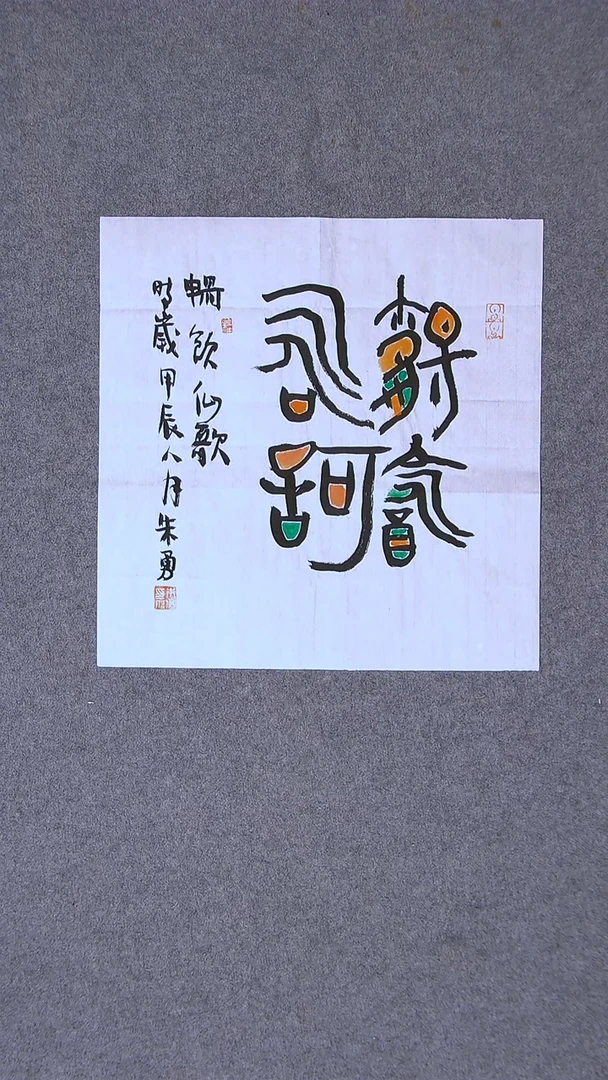 暢飲
仙歌
暢飲仙歌
時歲甲辰八月朱勇